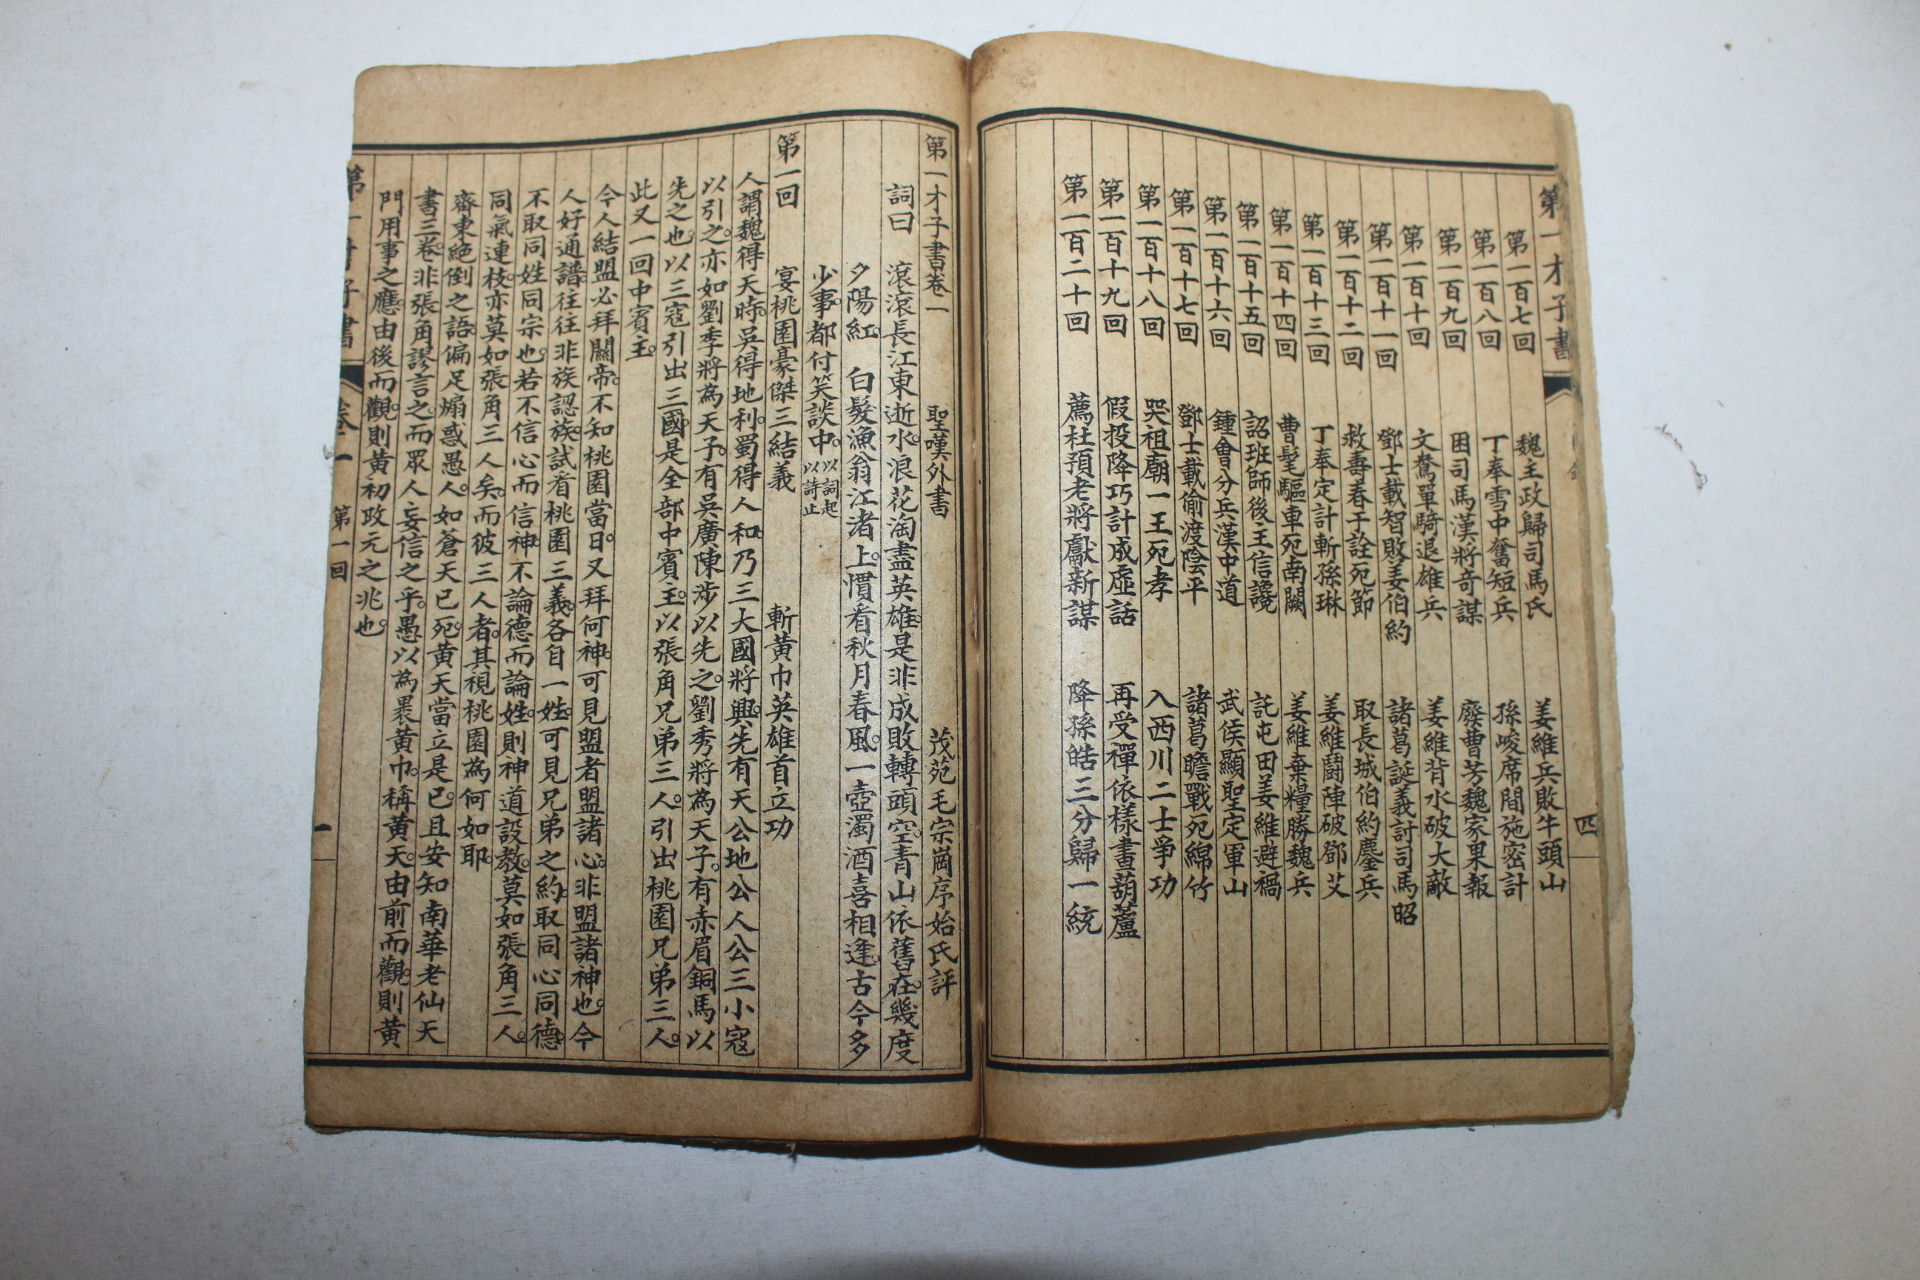 第一才子書 四
第一百七回 魏主政歸司馬氏 姜維兵敗牛頭山
第一百八回 丁奉雪中奮短兵 孫峻席間施密計
第一百九回 困司馬漢將奇謀 廢曹芳魏家果報
第一百十回 文鴦單騎退雄兵 姜維背水破大敵
第一百十一回 鄧士載智敗姜伯約 諸葛誕義討司馬昭
第一百十二回 救壽春于詮死節 取長城伯約鏖兵
第一百十三回 丁奉定計斬孫琳 姜維鬪陣破鄧艾
第一百十四回 曹髦驅車死南闕 姜維棄糧勝魏兵
第一百十五回 詔班師後主信讒 託屯田姜維避禍
第一百十六回 鍾會分兵漢中道 武侯顯聖定軍山
第一百十七回 鄧士載偷渡陰平 諸葛瞻戰死綿竹
第一百十八回 哭祖廟一王死孝 入西川二士爭功
第一百十九回 假投降巧計成虛話 再受禪依樣畫葫蘆
第一百二十回 薦杜預老將獻新謀 降孫皓三分歸一統
第一才子書卷一 聖嘆外書 茂苑毛宗崗序始氏評
詞曰 滾滾長江東逝水。浪花淘盡英雄。是非成敗轉頭空。青山依舊在。幾度
夕陽紅 白髮漁翁江渚上。慣看秋月春風。一壺濁酒喜相逢。古今多
少事。都付笑談中。以詞起以詩止
第一回 宴桃園豪傑三結義 斬黃巾英雄首立功
人謂魏得天時。吳得地利。蜀得人和。乃三大國將興。先有天公地公人公三小寇
以引之。亦如劉季將為天子。有吳廣陳涉以先之。劉秀將為天子。有赤眉銅馬以
先之也。以三寇引出三國。是全部中賓主。以張角兄弟三人。引出桃園兄弟三人。
此又一回中賓主。
今人結盟必拜關帝。不知桃園當日。又拜何神。可見盟者盟諸心。非盟諸神也。今
人好通譜。往往非族認族。試看桃園三義。各自一姓。可見兄弟之約。取同心同德。
不取同姓同宗也。若不信心而信神。不論德而論姓。則神道設教。莫如張角三人。
同氣連枝。亦莫如張角三人矣。而彼三人者。其視桃園為何如耶。
齋東絕倒之語。偏足煽惑愚人。如蒼天已死。黃天當立是已。且安知南華老仙天
書三卷。非張角謬言之。而眾人妄信之乎。愚以為裹黃巾。稱黃天。由前而觀。則黃
門用事之應。由後而觀。則黃初改元之兆也。
第一才子書 卷一 第一回 一